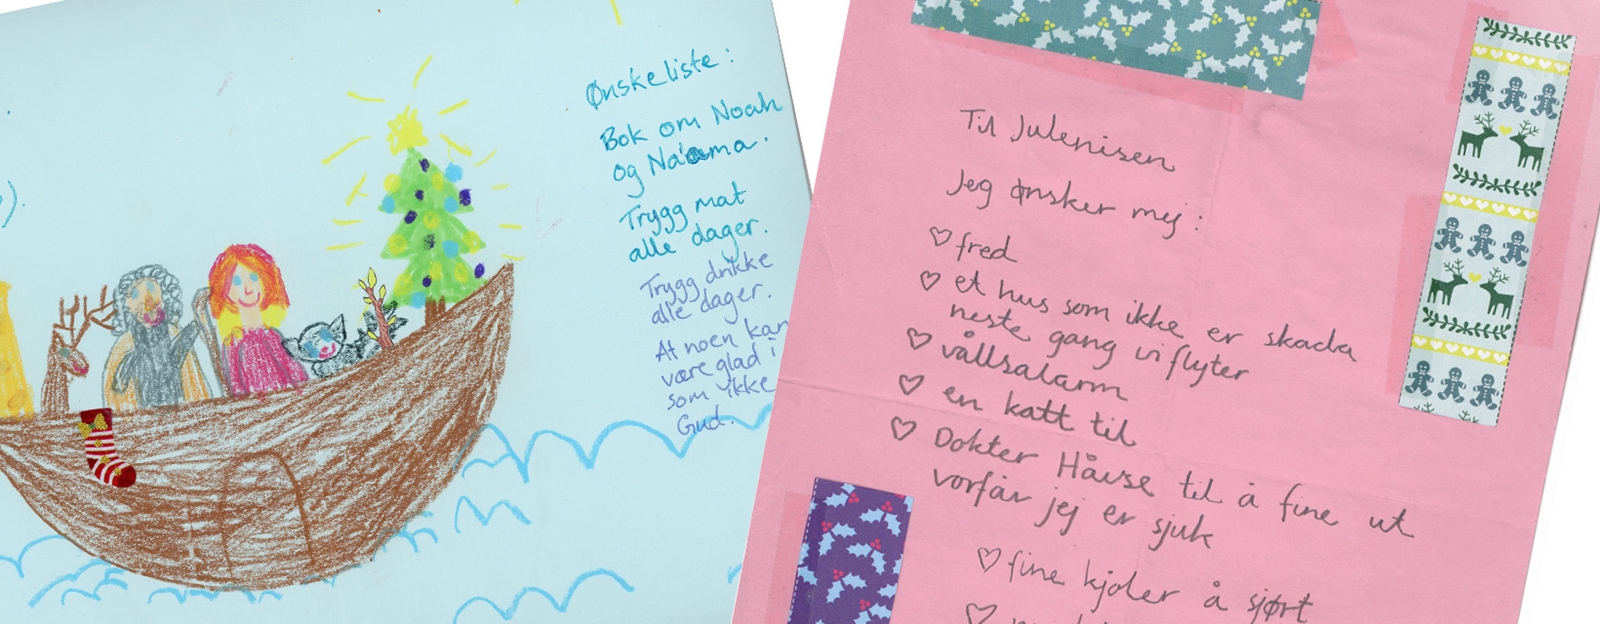 ).
Ønskeliste:
Bok om Noah
og Na'ama.
Trygg mat
alle dager.
Trygg drikke
alle dager.
At noen kan
være glad i
som ikke
Gud.
Til Julenisen
Jeg ønsker mej:
fred
et hus som ikke er skada
neste gang vi flyter
vållsalarm
en katt til
Dokter Håuse til å fine ut
vorfår jej er sjuk
fine kjoler å sjørt